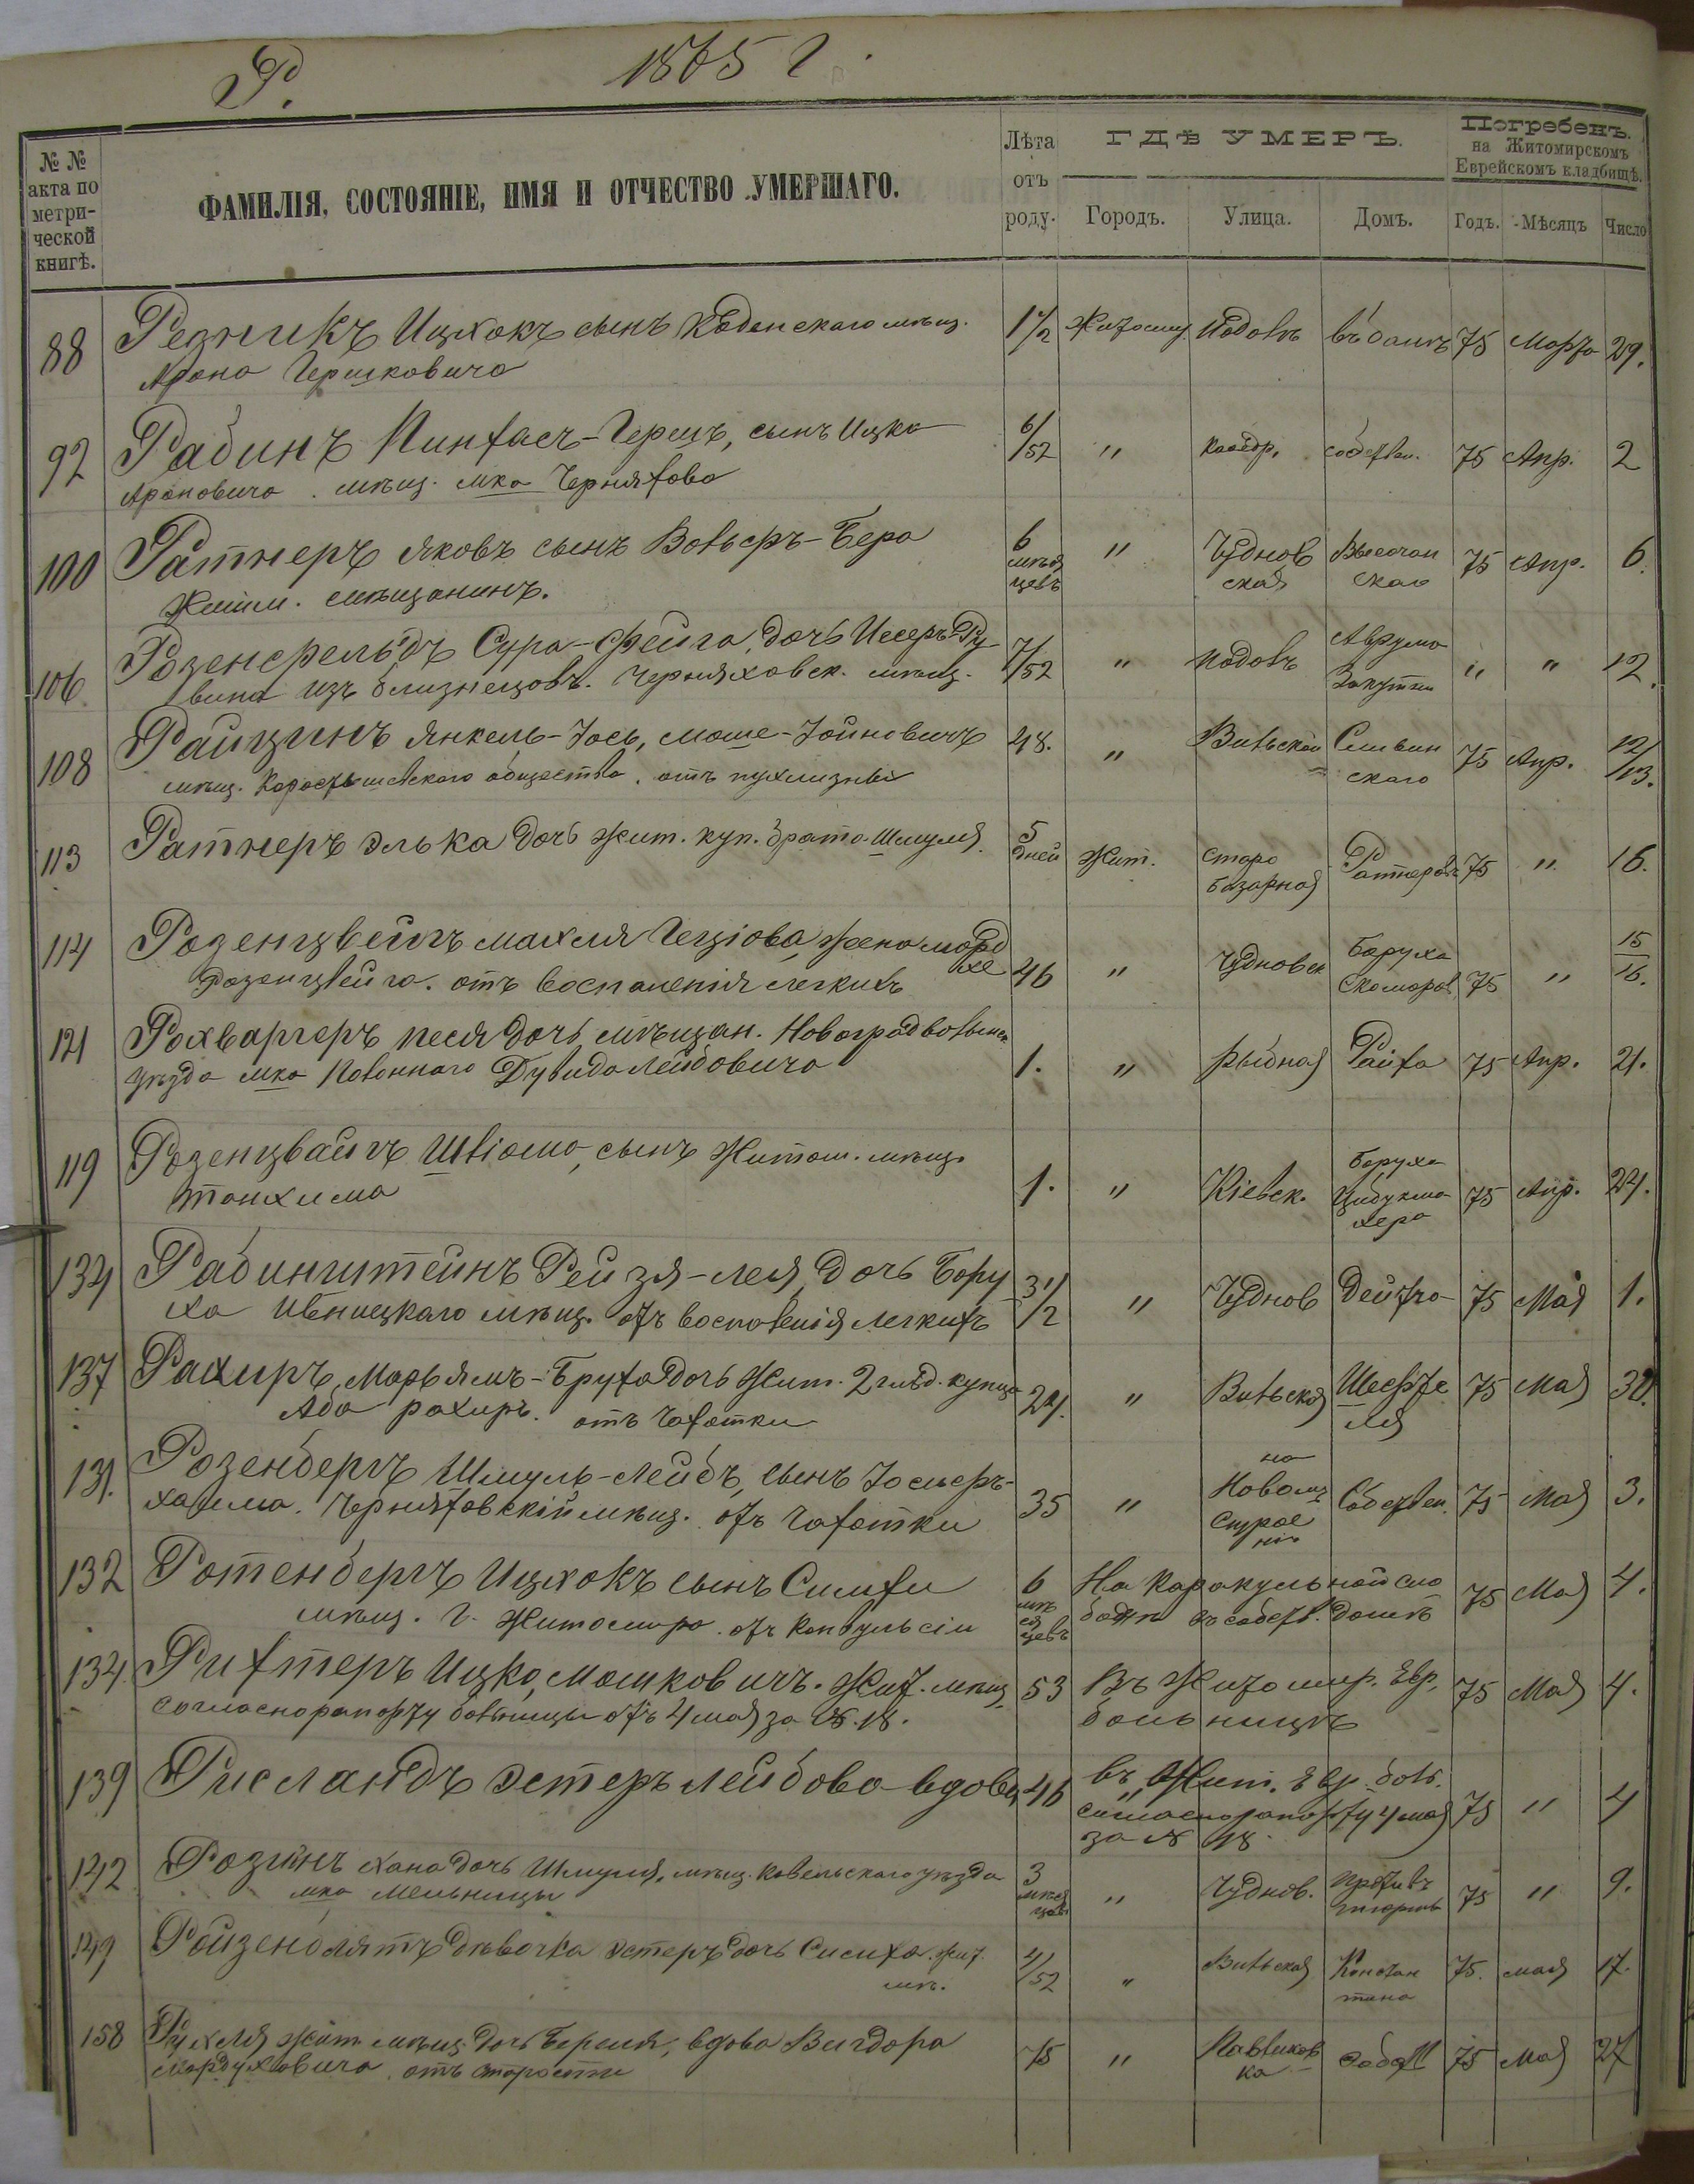 Р. 1875 г.
№ № акта по метрической книгѣ.
ФАМИЛІЯ, СОСТОЯНІЕ, ИМЯ И ОТЧЕСТВО УМЕРШАГО.
Лѣта отъ роду.
ГДѢ УМЕРЪ.
Городъ. Улица. Домъ.
Погребенъ. на Житомирскомъ Еврейскомъ кладбищѣ.
Годъ. Мѣсяцъ Число
88 Резникъ Ицхокъ сынъ мѣщ. 1 1/2 Житомир. въ банѣ 75 Марта 29.
Арона Гершковича
92 Рабинъ Пинхасъ-Гершъ, сынъ Ицка 6/52 " каѳедр. собствен. 75 Апр. 2
Ароновича мѣщ. мка Черняхова
100 Ратнеръ Яковъ сынъ Вольфъ-Бера 6 мѣсяцевъ " Чудновская Высочанскаго 75 Апр. 6.
Жит. мѣщанинъ.
106 Розенфельдъ Сура-Фейга, дочь 7/52 " Аврума " " 12.
вина изъ близнецовъ. Черняховск. мѣщ.
108 Райцинъ Янкель-Іось, Моше-Іойновичъ 48. " Вильской 75 Апр. 12/13.
мѣщ. Коростышевскаго общества.
113 Ратнеръ Элька дочь Жит. куп. брата Шмуля. 5 дней Жит. Старобазарная Ратнеровъ 75 " 16.
114 Розенцвейгъ Махля жена Мордхе 46 " Чудновск. Боруха 75 " 15/16.
Розенцвейга. отъ воспаленія легкихъ
121 Рохваргеръ Песя дочь мѣщан. Новоградволынск. 1. " Рыбная Райха 75 Апр. 21.
уѣзда мка Полоннаго Дувида Лейбовича
119 Розенцвайгъ сынъ Житом. мѣщ. 1. " Кіевск. Боруха 75 Апр. 24.
Танхима
134 Рабинштейнъ Рейзя-Лея, дочь Бору 3 1/2 " Чуднов 75 Мая 1.
ха Ивницкаго мѣщ. отъ воспаленія легкихъ
137 Рахиръ, Марьямъ-Бруха дочь Жит. 2 гильд. купца 24. " Вильская 75 Мая
Аба Рахиръ. отъ Чахотки
131. Розенбергъ Шмуль-Лейбъ, сынъ Іосифъ- 35 " на Новомъ Строеніи Собствен. 75 Мая 3.
Хаима. Черняховскій мѣщ. отъ Чахотки
132 Ротенбергъ Ицхокъ сынъ Симхи 6 мѣсяцевъ На Каракульной слободкѣ въ собств. домѣ 75 Мая 4.
мѣщ. г. Житомира. отъ Конвульсіи
134. Рихтеръ Ицко, Мошковичъ. Жит. мѣщ. 53 Въ Житомир. Евр. больницѣ 75 Мая 4.
согласно рапорту больницы отъ 4 мая за № 18.
139 Рисландъ Эстеръ Лейбова вдова 46 въ Жит. Евр. боль. согласно рапорту 4 мая за № 18. 75 " 4
142 Розинъ Хана дочь Шмуля, мѣщ. Ковельскаго уѣзда 3 мѣсяцев " Чуднов. противъ тюрьмы 75 " 9.
мка Мельницы
149 Ройзенблятъ дѣвочка Эстеръ дочь Жит. 4/52 " Вильская Константина 75. мая 17.
мѣ.
158 Рухля Жит. мѣщ. дочь Береля, вдова Вигдора 75 " Павликовка 75 Мая 27
Мордуховича, отъ старости